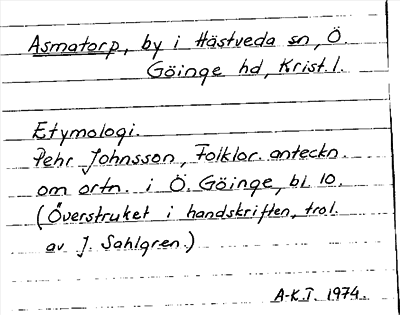 Asmatorp, by i Hästveda sn, Ö.
Göinge hd, Krist. l.
Etymologi.
Pehr Johnsson, Folklor. anteckn.
om ortn. i Ö. Göinge, bl. 10.
(Överstruket i handskriften, trol.
av J. Sahlgren.)
A-K.T. 1974.